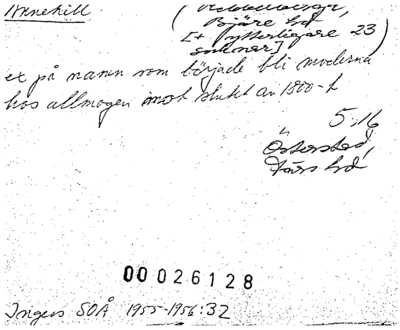 Annehill
Bjäre hd
[+ ytterligare 23
socknar]
ex på namn som började bli moderna
hos allmogen mot slutet av 1800-t
5:16
Östersted,
Färs hd
00026128
Ingers SOÅ 1955-1956:32